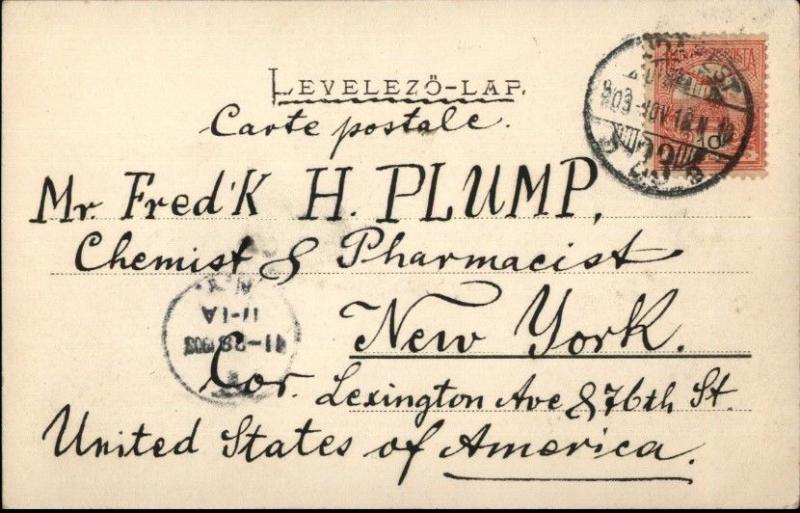 LEVELEZŐ-LAP.
Carte postale.
Mr. Fred'K H. PLUMP,
Chemist & Pharmacist
New York.
Cor. Lexington Ave & 76th St.
United States of America.
11-28 1903
11-1A
10